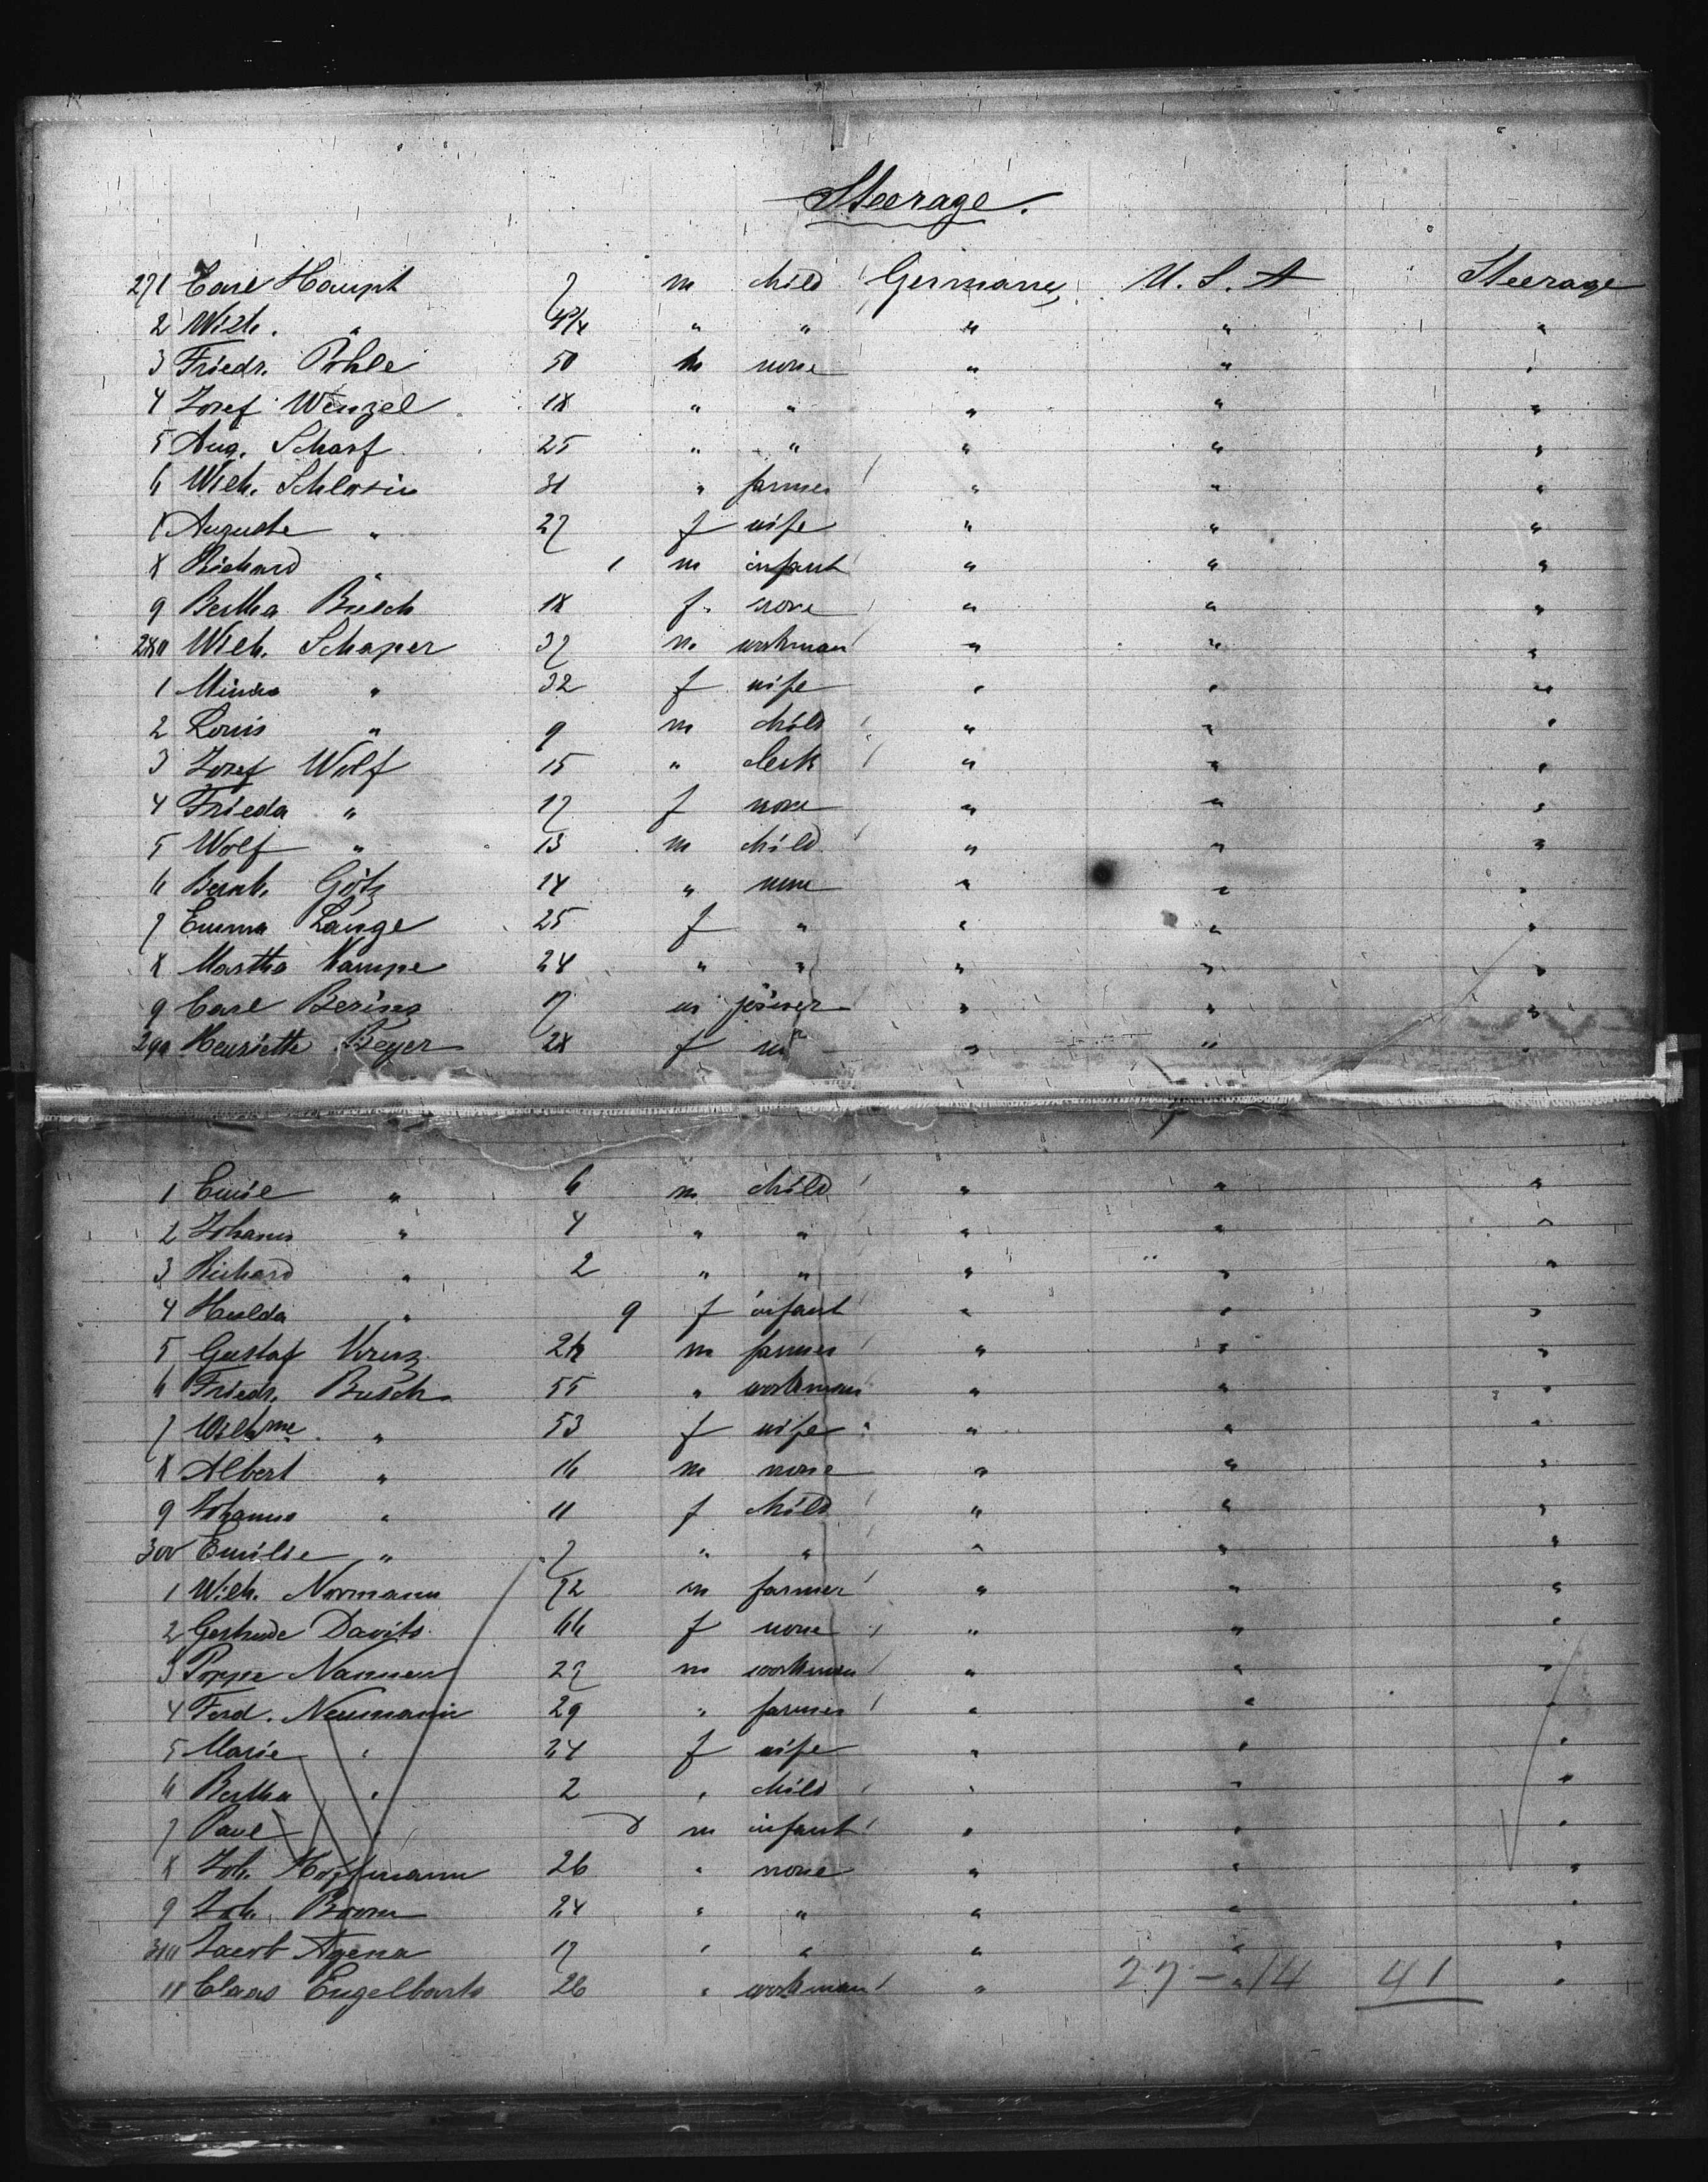 Steerage.
271 Carl Haupt 7 m child Germany U. S. A Steerage
2 Wilh. " " " " " "
3 Friedr. Pohle 50 m none " " "
4 Josef Wenzel 18 " " " " "
5 Aug. Scharf 25 " " " " "
6 Wilh. Schlosin 31 " farmer " " "
7 Auguste " 27 f wife " " "
8 Richard " 1 m infant " " "
9 Bertha Busch 18 f. none " " "
280 Wilh. Schaper 37 m. workman " " "
1 Minna " 32 f wife " " "
2 Louis " 9 m child " " "
3 Josef Wolf 15 " clerk " " "
4 Frieda " 17 f none " " "
5 Wolf " 13 m child " " "
6 Bernh. Götz 14 " none " " "
7 Emma Lange 25 f " " " "
8 Martha Kampe 24 " " " " "
9 Carl 17 m joiner " " "
290 Henriette Beyer 28 f " " "
1 Emil " 6 m child " " "
2 Johann " 4 " " " " "
3 Richard " 2 " " " " "
4 Hulda " 9 f infant " " "
5 Gustaf m farmer " " "
6 Friedr. Busch 55 " workman " " "
7 Wilhme. " 53 f wife " " "
8 Albert " 16 m none " " "
9 Johanna " 11 f child " " "
300 Emilie " 7 " " " " "
1 Wilh. Normann 72 m farmer " " "
2 Gertrude Davids 66 f none " " "
3 Poppe Nannen 27 m workman " " "
4 Ferd. Neumann 29 " farmer " " "
5 Marie " 24 f wife " " "
6 Bertha " 2 " child " " "
7 Paul " m infant " " "
8 Joh. Hoffmann 26 " none " " "
9 Joh. Boom 24 " " " " "
310 Jacob Agena 17 " " " " "
11 Claas Engelbarts 26 " workman " " "
27 - 14 41